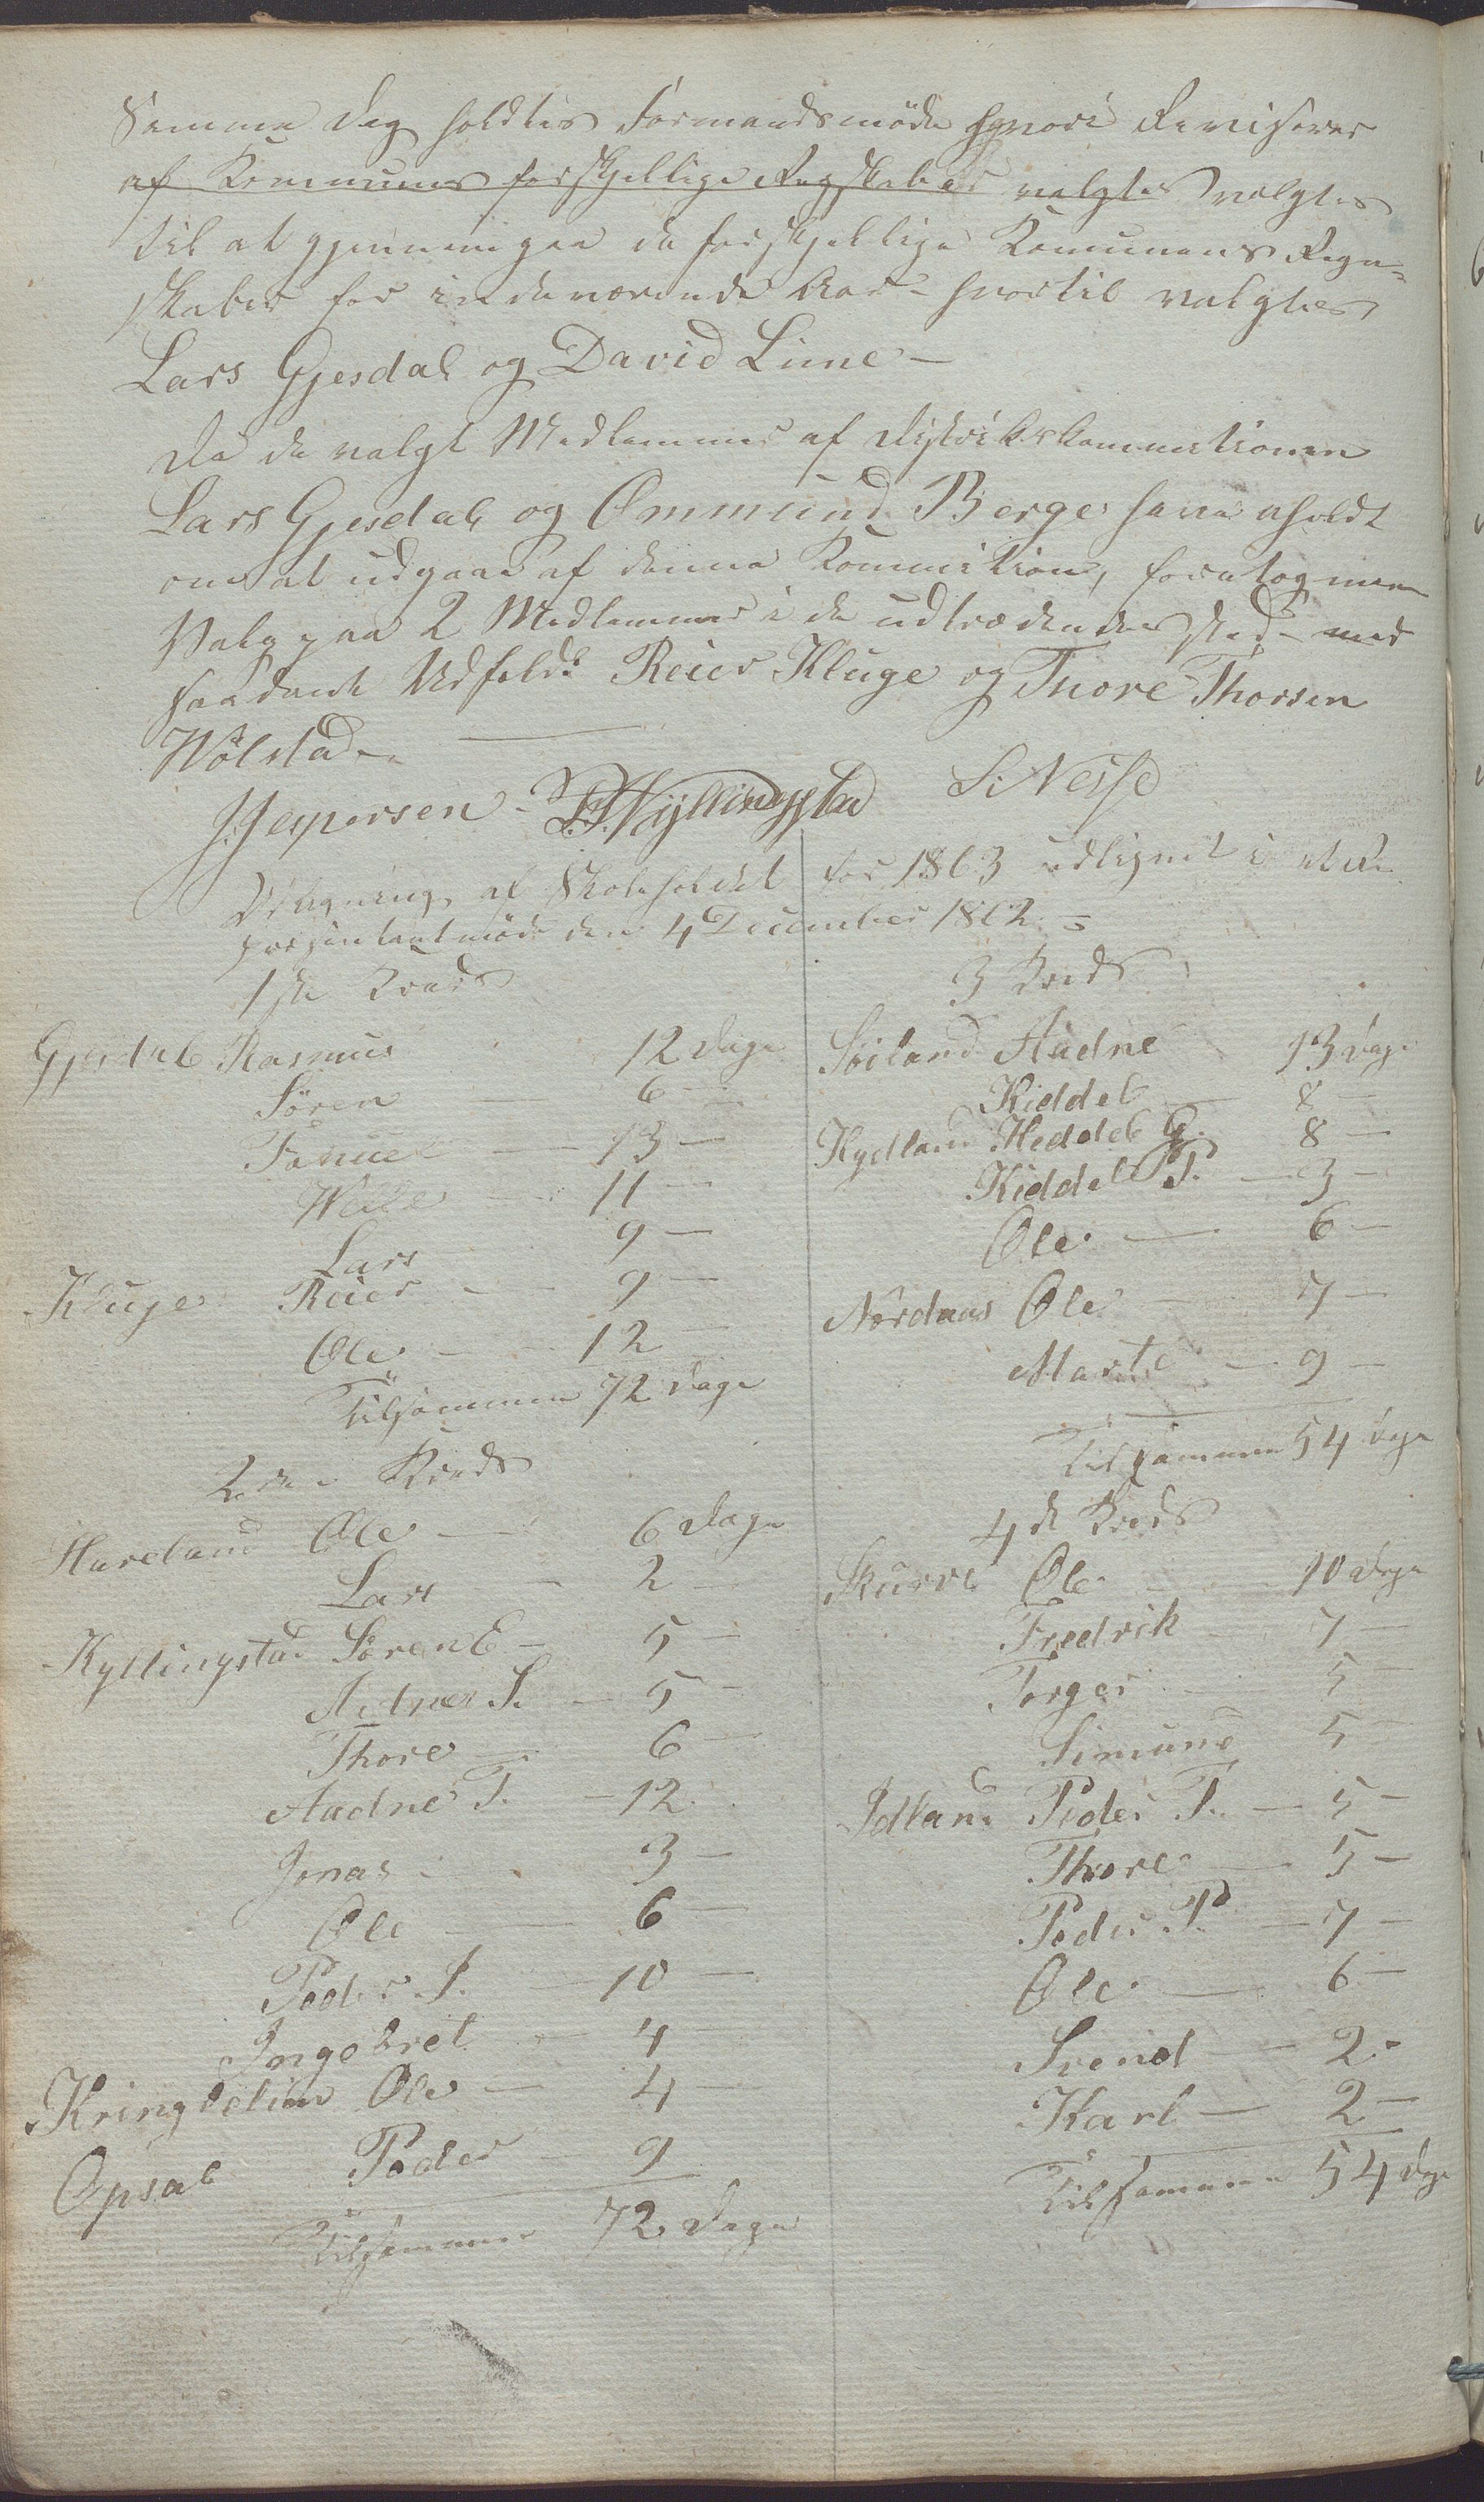 Samme Dag holdtes Formandsmöde hvori Revisorer
af Kommunens forskjellige Regskaber valgtes valgtes
til at gjennemgaa de forskjellige Kommunens Regn-
skaber for indeværende Aar - hvortil valgtes
Lars Gjesdal og David Lime -
Da de valgt Medlemmer af Distriktskommitionen
Lars Gjesdal og Ommund Berge have anholdt
om at udgaae af denne Kommition, foretoges man
Valg paa 2 Medlemmer i de udtrædendes sted - med
saadant Udfald: Reier Kluge og Tnore Thorsen
Wölstad -
J. Jespersen - S. S. Kyllingstad S. Nesse
Udligning af Skoleholdet for 1863 udlignet i et Re-
presentantmöde den 4 December 1862 =
1ste Kreds
Gjesdal Rasmus 12 Dage
Sören — 6 —
Tønnes — 13 —
Wille — 11 —
Lars 9 —
Kluge Reier — 9 —
Ole — 12 —
Tilsammen 72 Dage
2den Kreds
Haveland Ole — 6 Dage
Lars — 2 —
Kyllingstad Søren E — 5 —
Adne S. — 5 —
Thore — 6 —
Aadne T. — 12
Jonas — 3 —
Ole — 6 —
Peder S. — 10 —
Ingebret — 4 —
Kringlelien Ole — 4 —
Opsal Peder — 9
Tilsammen 72 Dage
3 Kreds
Söiland Audne 13 Dage
Kiddel — 8 —
Kydland Heddel G. 8 —
Kiddel T. — 3 —
Ole — 6 —
Nordaas Ole — 7 —
Marte — 9 —
Tilsammen 54 Dage
4de Kreds
Skurve Ole — 10 Dage
Fredrik — 7 —
Torger — 5 —
Simund 5 —
Idland Peder T. — 5 —
Thore — 5 —
Peder P. — 7 —
Ole — 6 —
Svend — 2 -
Karl — 2 —
Tilsammen 54 Dage